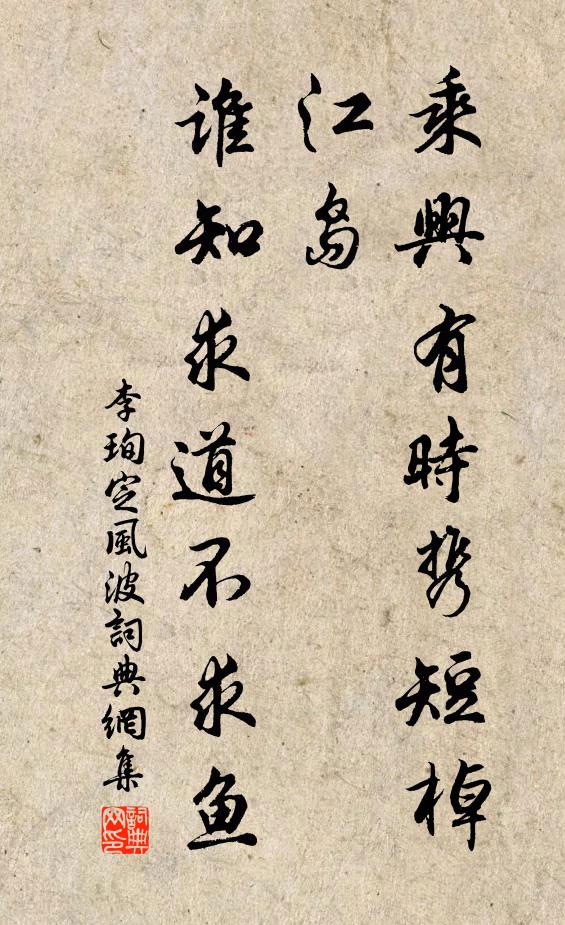 乘興有時携短棹
江島
誰知求道不求魚
李珣定風波詞典網集
詞典网印